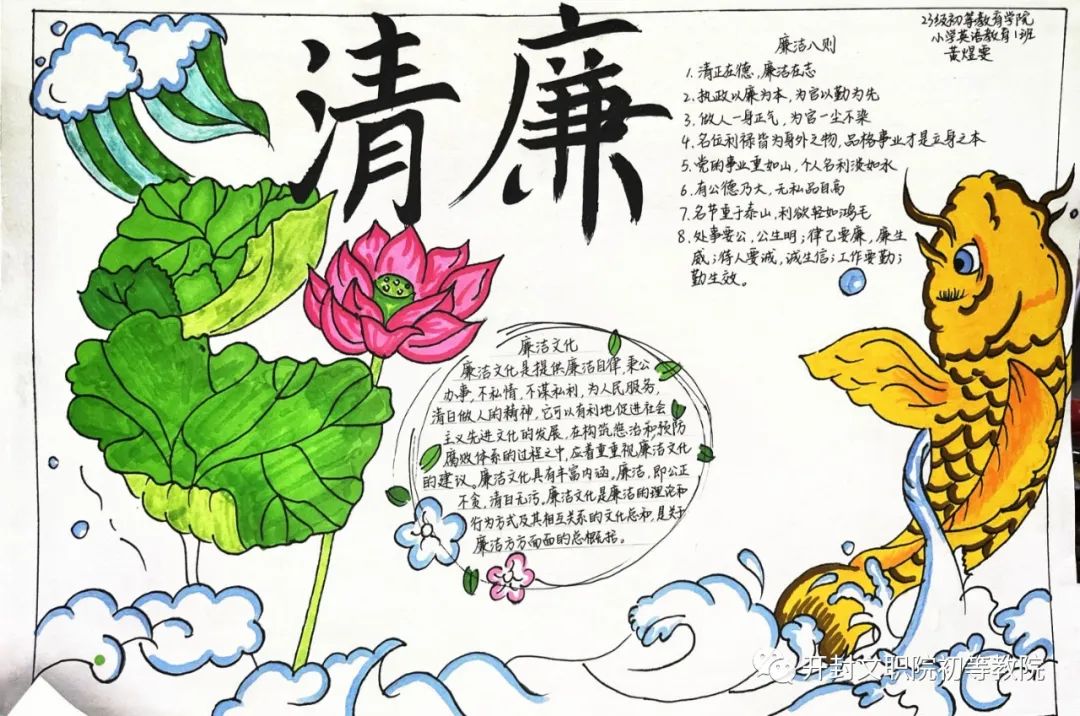 清廉
23级初等教育学院
小学英语教育1班
黄煜雯
廉洁八则
1. 清正在德，廉洁在志
2. 执政以廉为本，为官以勤为先
3. 做人一身正气，为官一尘不染
4. 名位利禄皆为身外之物，品格事业才是立身之本
5. 党的事业重如山，个人名利淡如水
6. 有公德乃大，无私品自高
7. 名节重于泰山，利欲轻如鸿毛
8. 处事要公，公生明；律己要廉，廉生
威；待人要诚，诚生信；工作要勤；
勤生效。
廉洁文化
廉洁文化是提供廉洁自律，秉公
办事，不私情，不谋私利，为人民服务，
清白做人的精神，它可以有利地促进社会
主义先进文化的发展，在构筑惩治和预防
腐败体系的过程之中，应着重重视廉洁文化
的建议。廉洁文化具有丰富内涵。廉洁，即公正
不贪，清白无污。廉洁文化是廉洁的理论和
行为方式及其相互关系的文化总和，是关于
廉洁方方面面的总概括。
开封文职院初等教院